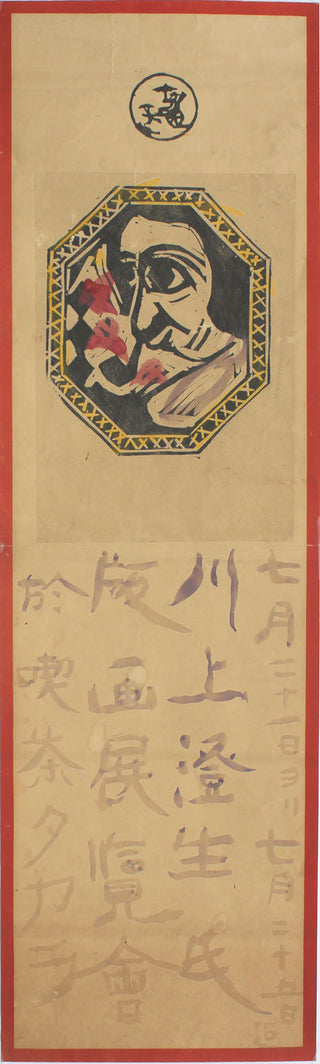 七月二十一日ヨリ七月二十五日迄
川上澄生氏
版画展覧會
於喫茶タカラ